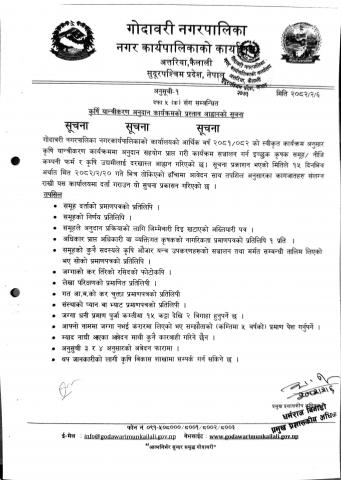 गोदावरी नगरपालिका
नगर कार्यपालिकाको कार्यालय
अत्तरिया, कैलाली
सुदूरपश्चिम प्रदेश, नेपाल
मिति २०८२/२/६
अनुसूची-१
दफा ५ (क) सँग सम्बन्धित
कृषि यान्त्रीकरण अनुदान कार्यक्रमको प्रस्ताव आह्वानको सूचना
सूचना सूचना सूचना
गोदावरी नगरपालिका नगरकार्यपालिकाको कार्यालयको आर्थिक वर्ष २०८१/०८२ को स्वीकृत कार्यक्रम अनुसार
कृषि यान्त्रीकरण कार्यक्रममा अनुदान सहयोग प्राप्त गरी कार्यक्रम सञ्चालन गर्न इच्छुक कृषक समूह/ नीजि
कम्पनी फर्म र कृषि उद्यमीलाई दरखास्त आह्वान गरिएको छ। सूचना प्रकाशन भएको मितिले १५ दिनभित्र
अर्थात मिति २०८२/२/२० गते भित्र तोकिएको ढाँचामा आवेदन साथ तपशिल अनुसारका कागजातहरु संलग्न
राखी यस कार्यालयमा दर्ता गराउन यो सूचना प्रकाशन गरिएको छ ।
तपसिल
• समूह दर्ताको प्रमाणपत्रको प्रतिलिपि ।
• समूहको निर्णय प्रतिलिपि ।
• समूहले अनुदान प्रक्रियाको लागि जिम्मेवारी दिइ खटाएको अख्तियारी पत्र ।
• अधिकार प्राप्त अधिकारी वा व्यक्तिगत कृषकको नागरिकता प्रमाणपत्रको प्रतिलिपि १ प्रति ।
• समूहको कुनै सदस्यले कृषि औजार यन्त्र उपकरणहरुको सञ्चालन तथा मर्मत सम्बन्धी तालिम लिएको
भए सोको प्रमाणपत्रको प्रतिलिपि ।
• जग्गाको कर तिरेको रसिदको फोटोकपि ।
• लेखा परिक्षणको प्रमाणित प्रतिलिपी ।
• गत आ.व.को कर चुक्ता प्रमाणपत्रको प्रतिलिपी
• संस्थाको प्यान वा भ्याट प्रमाणपत्रको प्रतिलिपी ।
• जग्गा धनी प्रमाण पुर्जा कम्तीमा १५ कठ्ठा देखि २ बिगाहा हुनुपर्ने छ ।
• आफ्नो नाममा जग्गा नभई करारमा लिएको भए सम्झौताको (कम्तिमा ५ वर्षको) प्रमाण पेश गर्नुपर्ने ।
• म्याद नाघी आएका आवेदन माथी कुनै कारवाही गरिने छैन ।
• अनुसूची ३ र ४ अनुसारको आवेदन फाराम ।
• थप जानकारीको लागी कृषि विकास शाखामा सम्पर्क गर्न सकिने छ ।
धर्मराज
प्रमुख प्रशासकीय अधिकृत
फोन नं ०९१-५०८०००/८००१/८००२/८००३
ई-मेल : info@godawarimunkailali.gov.np वेभसाईट : www.godawarimunkailali.gov.np
"आत्मनिर्भर कुमार समृद्ध गोदावरी"